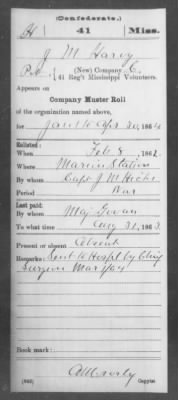 (Confederate.)
H 41 Miss.
J M Harvy
Pvt., (New) Company C,
41 Reg't Mississippi Volunteers.
Appears on
Company Muster Roll
of the organization named above,
for Jan 1 to Apr 30, 1864
Enlisted:
When Feb 8, 1862
Where Marion Station
By whom Capt J M Hicks
Period War
Last paid:
By whom Maj Govan
To what time Aug 31, 1863
Present or absent Absent
Remarks: Sent to Hospl by Chief
Surgeon Mar
Book mark:
(642) Copyist.